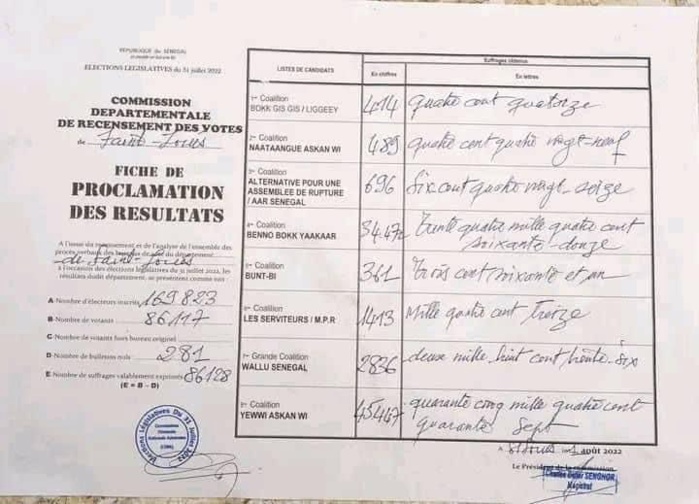 REPUBLIQUE DU SENEGAL
ELECTIONS LEGISLATIVES du 31 juillet 2022
COMMISSION
DEPARTEMENTALE
DE RECENSEMENT DES VOTES
de Saint-Louis
FICHE DE
PROCLAMATION
DES RESULTATS
A l'issue du recensement et de l'analyse de l'ensemble des
procès verbaux des bureaux de vote du département
de Saint-Louis
à l'occasion des élections législatives du 31 juillet 2022, les
résultats dudit département, se présentent comme suit :
A Nombre d'électeurs inscrits 169823
B Nombre de votants 86117
C Nombre de votants hors bureau originel
D Nombre de bulletins nuls 281
E Nombre de suffrages valablement exprimés 86128
(E = B - D)
Elections Législatives Du 31 Juillet 2022
LISTES DE CANDIDATS
Suffrages obtenus
En chiffres
En lettres
Coalition
BOKK GIS GIS / LIGGEEY
414
quatre cent quatorze
Coalition
NAATAANGUE ASKAN WI
489
quatre cent quatre vingt-neuf
Coalition
ALTERNATIVE POUR UNE
ASSEMBLEE DE RUPTURE
/ AAR SENEGAL
696
Six cent quatre vingt-seize
Coalition
BENNO BOKK YAAKAAR
34.472
Trente quatre mille quatre cent
soixante-douze
Coalition
BUNT-BI
361
Trois cent soixante et un
Coalition
LES SERVITEURS / M.P.R
1413
Mille quatre cent Treize
Grande Coalition
WALLU SENEGAL
2836
deux mille huit cent trente-six
Coalition
YEWWI ASKAN WI
45447
quarante cinq mille quatre cent
quarante sept
A St Louis août 2022
Le Président de la commission
SENGHOR
Magistrat